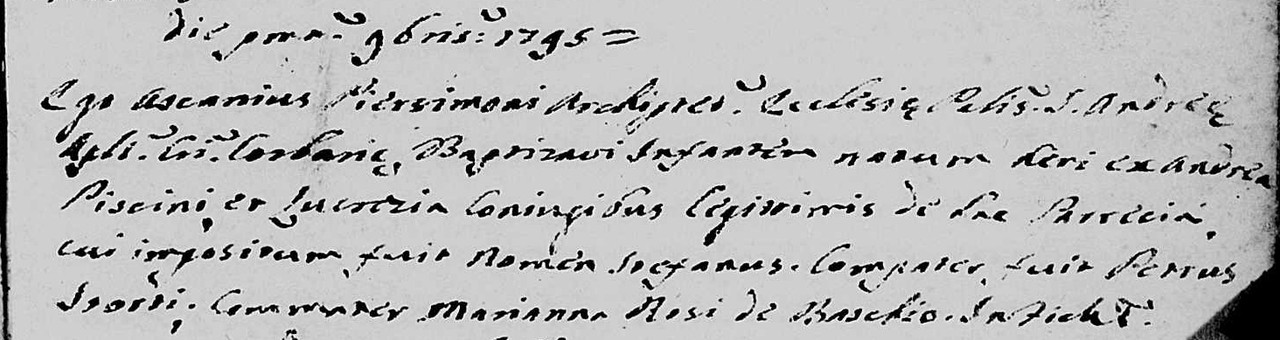 die pma 9bris: 1795 =
Ego Ascanius Piersimoni Archipter. Ecclesię Pelis. S. Andreę
Apli. Corbarię, Baptizavi Infantem natum heri ex Andrea
Piscini, et Lucrezia Coniugibus legitimis de hac Parrecia,
cui impositum fuit Nomen Stefanus. Compater fuit Petrus
Storti, Commater Marianna Rosi de Baschio. In fidem